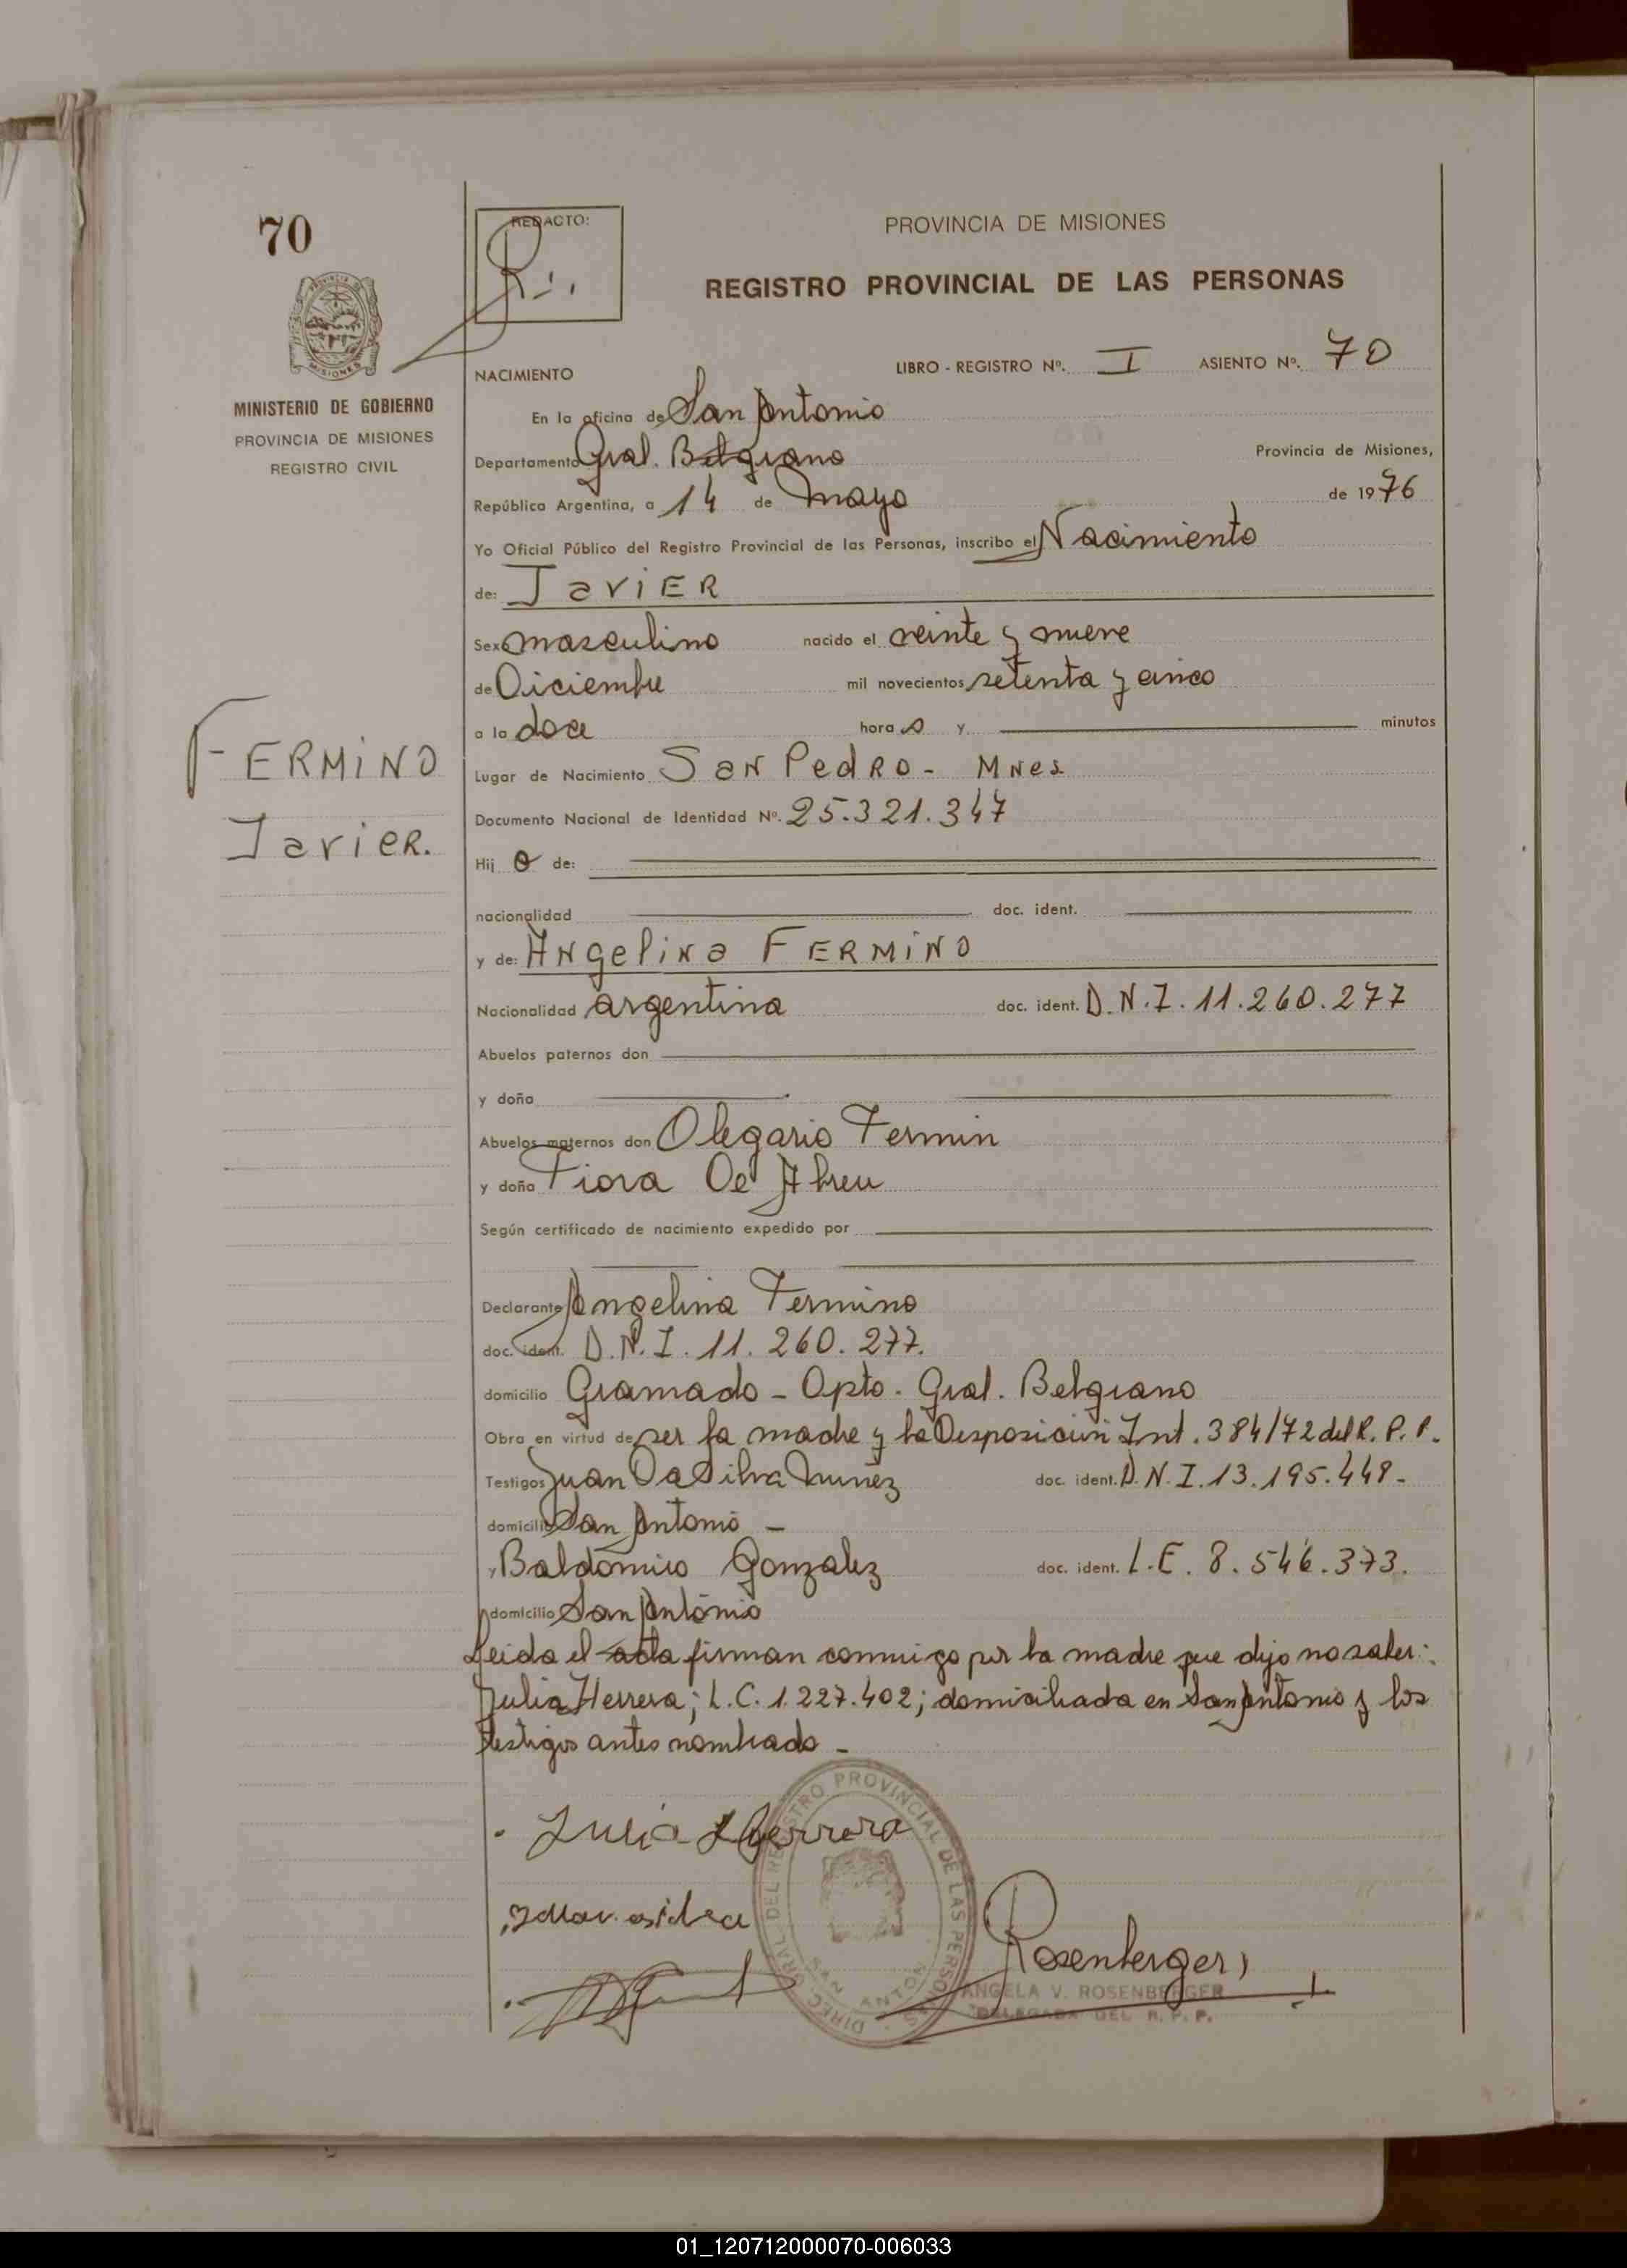 70
REDACTO:
PROVINCIA DE MISIONES
REGISTRO PROVINCIAL DE LAS PERSONAS
MINISTERIO DE GOBIERNO
PROVINCIA DE MISIONES
REGISTRO CIVIL
NACIMIENTO LIBRO - REGISTRO Nº. I ASIENTO Nº. 70
En la oficina de San Antonio
Departamento Gral. Belgrano Provincia de Misiones,
República Argentina, a 14 de Mayo de 1976
Yo Oficial Público del Registro Provincial de las Personas, inscribo el Nacimiento
de: JaviER
Sexo masculino nacido el veinte y nueve
de Diciembre mil novecientos setenta y cinco
a la doce hora s y minutos
FERMiNO
JavieR.
Lugar de Nacimiento San PedRO - Mnes
Documento Nacional de Identidad Nº. 25.321.347
Hij o de:
nacionalidad doc. ident.
y de: Angelina FERMiNO
Nacionalidad argentina doc. ident. D.N.I. 11.260.277
Abuelos paternos don
y doña
Abuelos maternos don Olegario Fermin
y doña Fiora De Abreu
Según certificado de nacimiento expedido por
Declarante Angelina Fermino
doc. ident. D.N.I. 11.260.277.
domicilio Gramado - Dpto. Gral. Belgrano
Obra en virtud de ser la madre y la Desposicion Int. 384/72 del R.P.P.
Testigos Juan Da Silva Nuñez doc. ident. D.N.I. 13.195.449.-
domicilio San Antonio -
y Baldomero Gonzalez doc. ident. L.E. 8.546.373.
domicilio San Antonio
Leida el acta firman conmigo por la madre que dijo no saber:
Julia Herrera; L.C. 1.227.402; domiciliada en San Antonio y los
testigos antes nombrado -
Julia Herrera
DIREC. GRAL. DEL REGISTRO PROVINCIAL DE LAS PERSONAS
SAN ANTONIO
Rosenberger
ANGELA V. ROSENBERGER
DELEGADA DEL R. P. P.
01_120712000070-006033